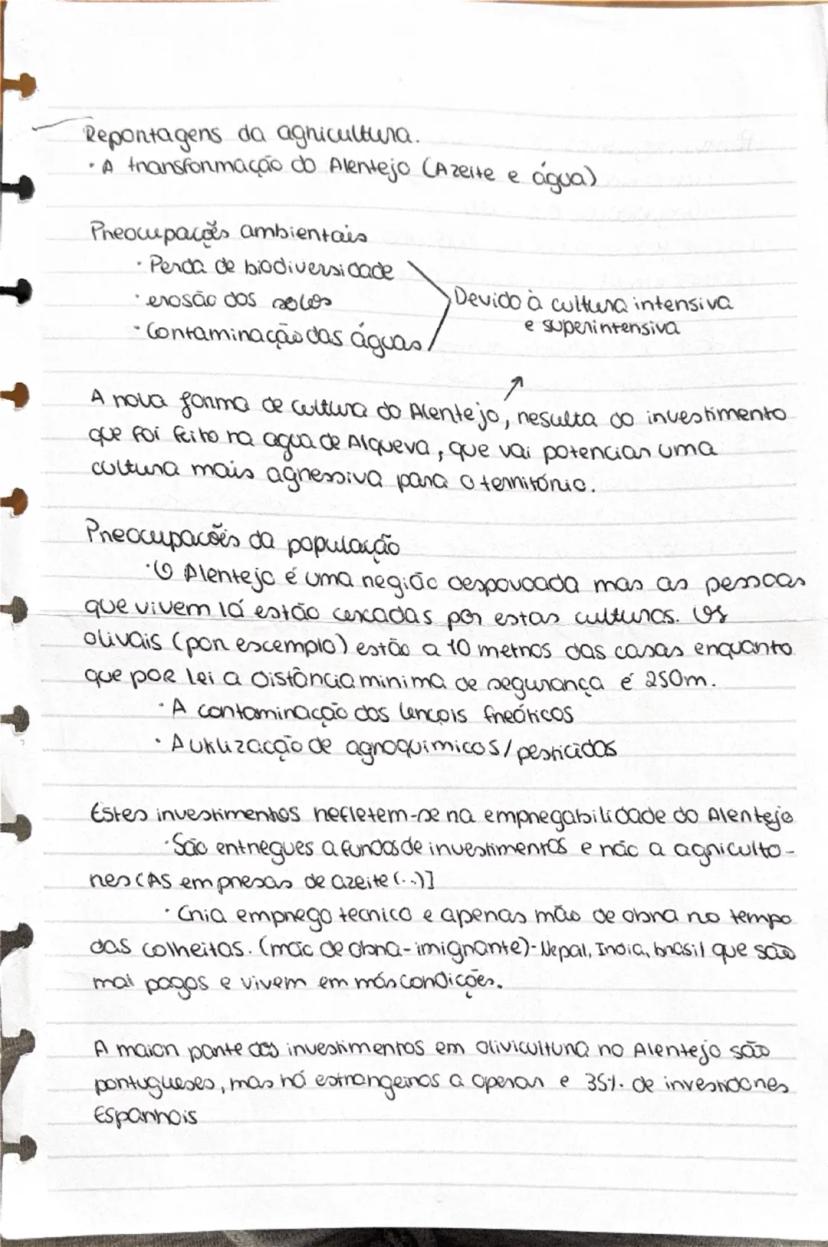 Repontagens da agricultura.
· A transformação do Alentejo (Azeite e água)
Preocupações ambientais
· Perda de biodiversidade
· erosão dos solos
· Contaminação das águas
Devido à cultura intensiva
e superintensiva
A nova forma de cultura do Alentejo, resulta do investimento
que foi feito na agua de Alqueva, que vai potenciar uma
cultura mais agressiva para o território.
Preocupações da população
· O Alentejo é uma região despovoada mas as pessoas
que vivem lá estão cercadas por estas culturas. Os
olivais (por escemplo) estão a 10 metros das casas enquanto
que por lei a distância minima de segurança é 250m.
· A contaminação dos lençois freáticos
· A utilização de agroquimicos/pesticidas
Estes investimentos refletem-se na empregabilidade do Alentejo
· São entregues a fundos de investimentos e não a agriculto-
res (AS empresas de azeite (...)]
· Cria emprego tecnico e apenas mão de obra no tempo
das colheitas. (mão de obra-imigrante)-Nepal, India, brasil que são
mal pagos e vivem em más condições.
A maior parte dos investimentos em olivicultura no Alentejo são
portugueses, mas há estrangeiros a operar e 35% de investidores
Espanhois